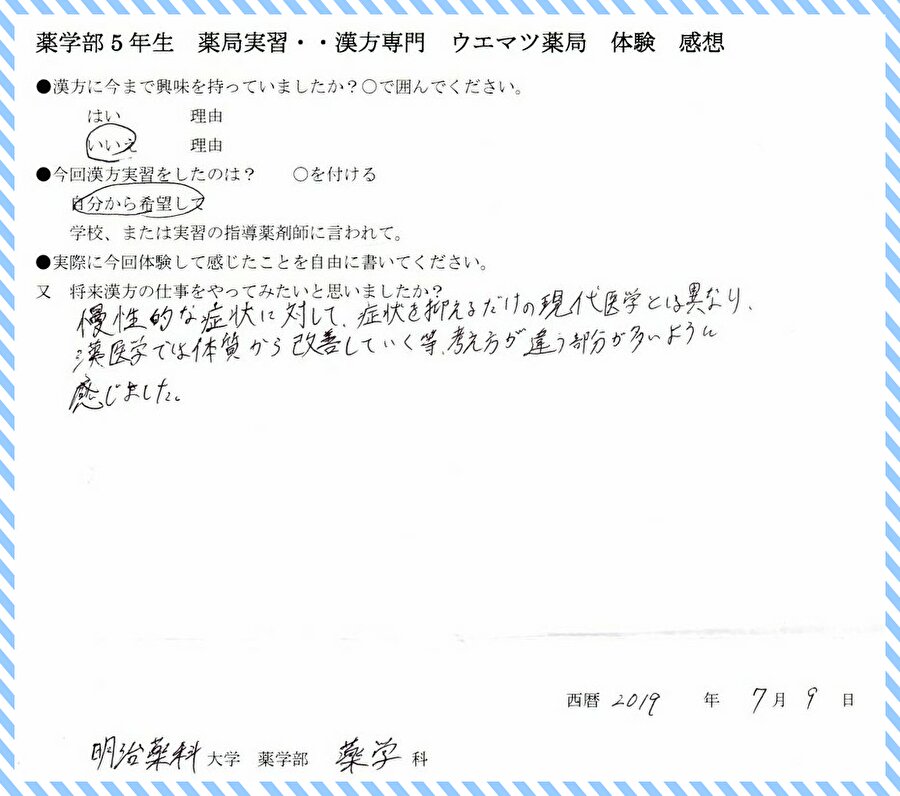 薬学部5年生　薬局実習・・漢方専門　ウエマツ薬局　体験　感想
●漢方に今まで興味を持っていましたか？○で囲んでください。
はい　理由
いいえ　理由
●今回漢方実習をしたのは？　○を付ける
自分から希望して
学校、または実習の指導薬剤師に言われて。
●実際に今回体験して感じたことを自由に書いてください。
又　将来漢方の仕事をやってみたいと思いましたか？
慢性的な症状に対して、症状を抑えるだけの現代医学とは異なり、
漢医学では体質から改善していく等、考え方が違う部分が多いように
感じました。
西暦 2019 年 7月 9 日
明治薬科大学　薬学部　薬学科